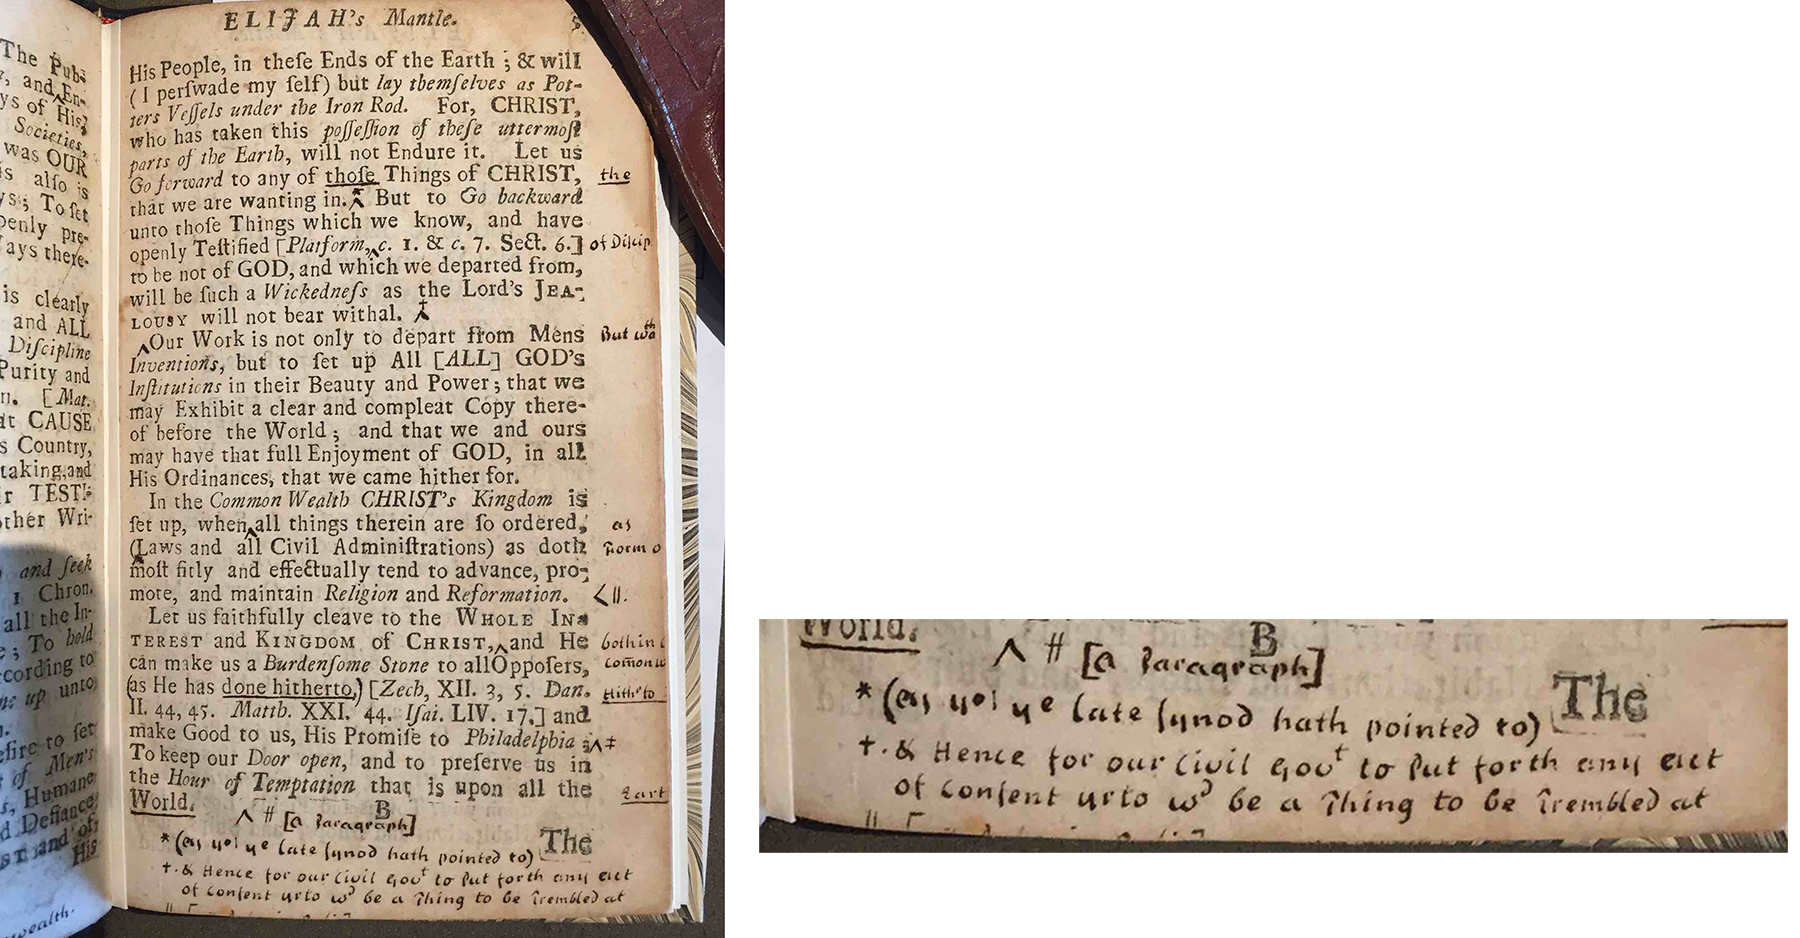 ELIJAH's Mantle. 5
The Pub-
and En-
ys of His
Societies,
was OUR
is also is
To set
penly pre-
ays there-
is clearly
and ALL
Discipline
Purity and
n. [Mat.
at CAUSE
s Country,
taking,and
r TESTI-
other Wri-
and ſeek
1 Chron.
all the In-
; To hold
ccording to
me up unto
efire to ſet
of Men's
s, Humane
d Defiance
and of
His
wealth.
His People, in theſe Ends of the Earth ; & will
( I perſwade my ſelf) but lay themſelves as Pot-
ters Veſſels under the Iron Rod. For, CHRIST,
who has taken this poſſeſſion of theſe uttermoſt
parts of the Earth, will not Endure it. Let us
Go forward to any of thoſe Things of CHRIST, the
that we are wanting in.* But to Go backward
unto thoſe Things which we know, and have
openly Teſtified [Platform, c. 1. & c. 7. Sect. 6.] of Discip
to be not of GOD, and which we departed from,
will be ſuch a Wickedneſs as the Lord's JEA-
LOUSY will not bear withal. †
Our Work is not only to depart from Mens But
Inventions, but to ſet up All [ALL] GOD's
Inſtitutions in their Beauty and Power ; that we
may Exhibit a clear and compleat Copy there-
of before the World ; and that we and ours
may have that full Enjoyment of GOD, in all
His Ordinances, that we came hither for.
In the Common Wealth CHRIST's Kingdom is
ſet up, when all things therein are ſo ordered, as
(Laws and all Civil Adminiſtrations) as doth
moſt fitly and effectually tend to advance, pro-
mote, and maintain Religion and Reformation. <||.
Let us faithfully cleave to the WHOLE IN-
TEREST and KINGDOM of CHRIST, and He both in
can make us a Burdenſome Stone to all Oppoſers,
(as He has done hitherto,) [Zech, XII. 3, 5. Dan.
II. 44, 45. Matth. XXI. 44. Iſai. LIV. 17.] and
make Good to us, His Promiſe to Philadelphia ; ‡
To keep our Door open, and to preſerve us in
the Hour of Temptation that is upon all the Eart
World.
B
# [a Paragraph]
* (as yet ye late ſynod hath pointed to) The
†. & Hence for our Civil Govt to put forth any act
of conſent unto wd be a Thing to be Trembled at
World.
B
# [a Paragraph]
* (as yet ye late ſynod hath pointed to) The
†. & Hence for our Civil Govt to put forth any act
of conſent unto wd be a Thing to be Trembled at